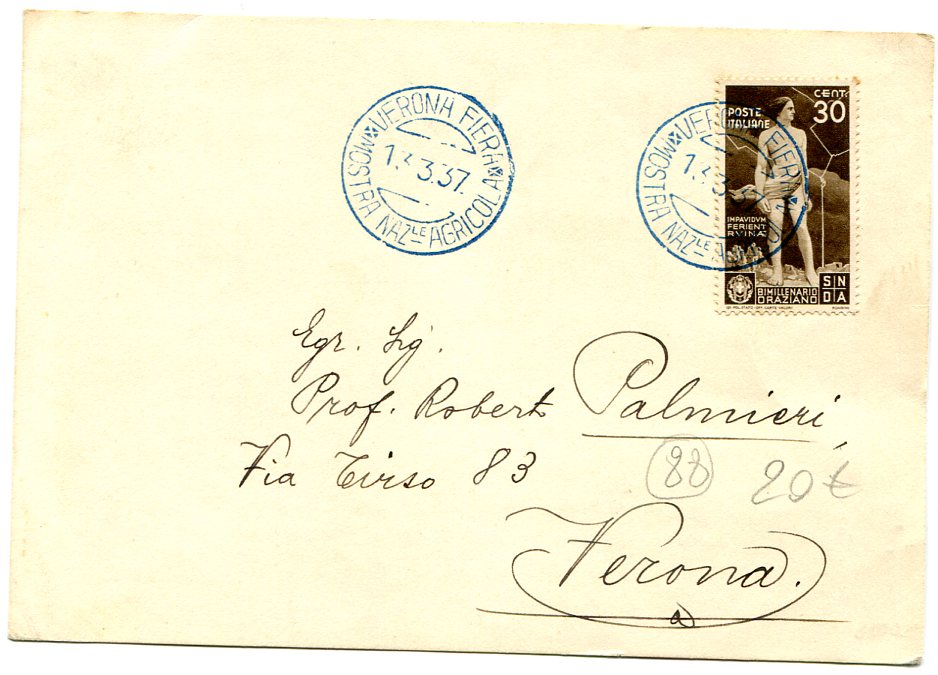 VERONA FIERA
1.3.37.
MOSTRA NAZLE AGRICOLA
VERONA FIERA
1.3.
MOSTRA NAZLE
CENT. 30
POSTE
ITALIANE
IMPAVIDVM
FERIENT
RVINÆ
BIMILLENARIO
ORAZIANO
S N
D A
Egr. Sig.
Prof. Robert Palmieri,
Via Tirso 83
20€
Verona.